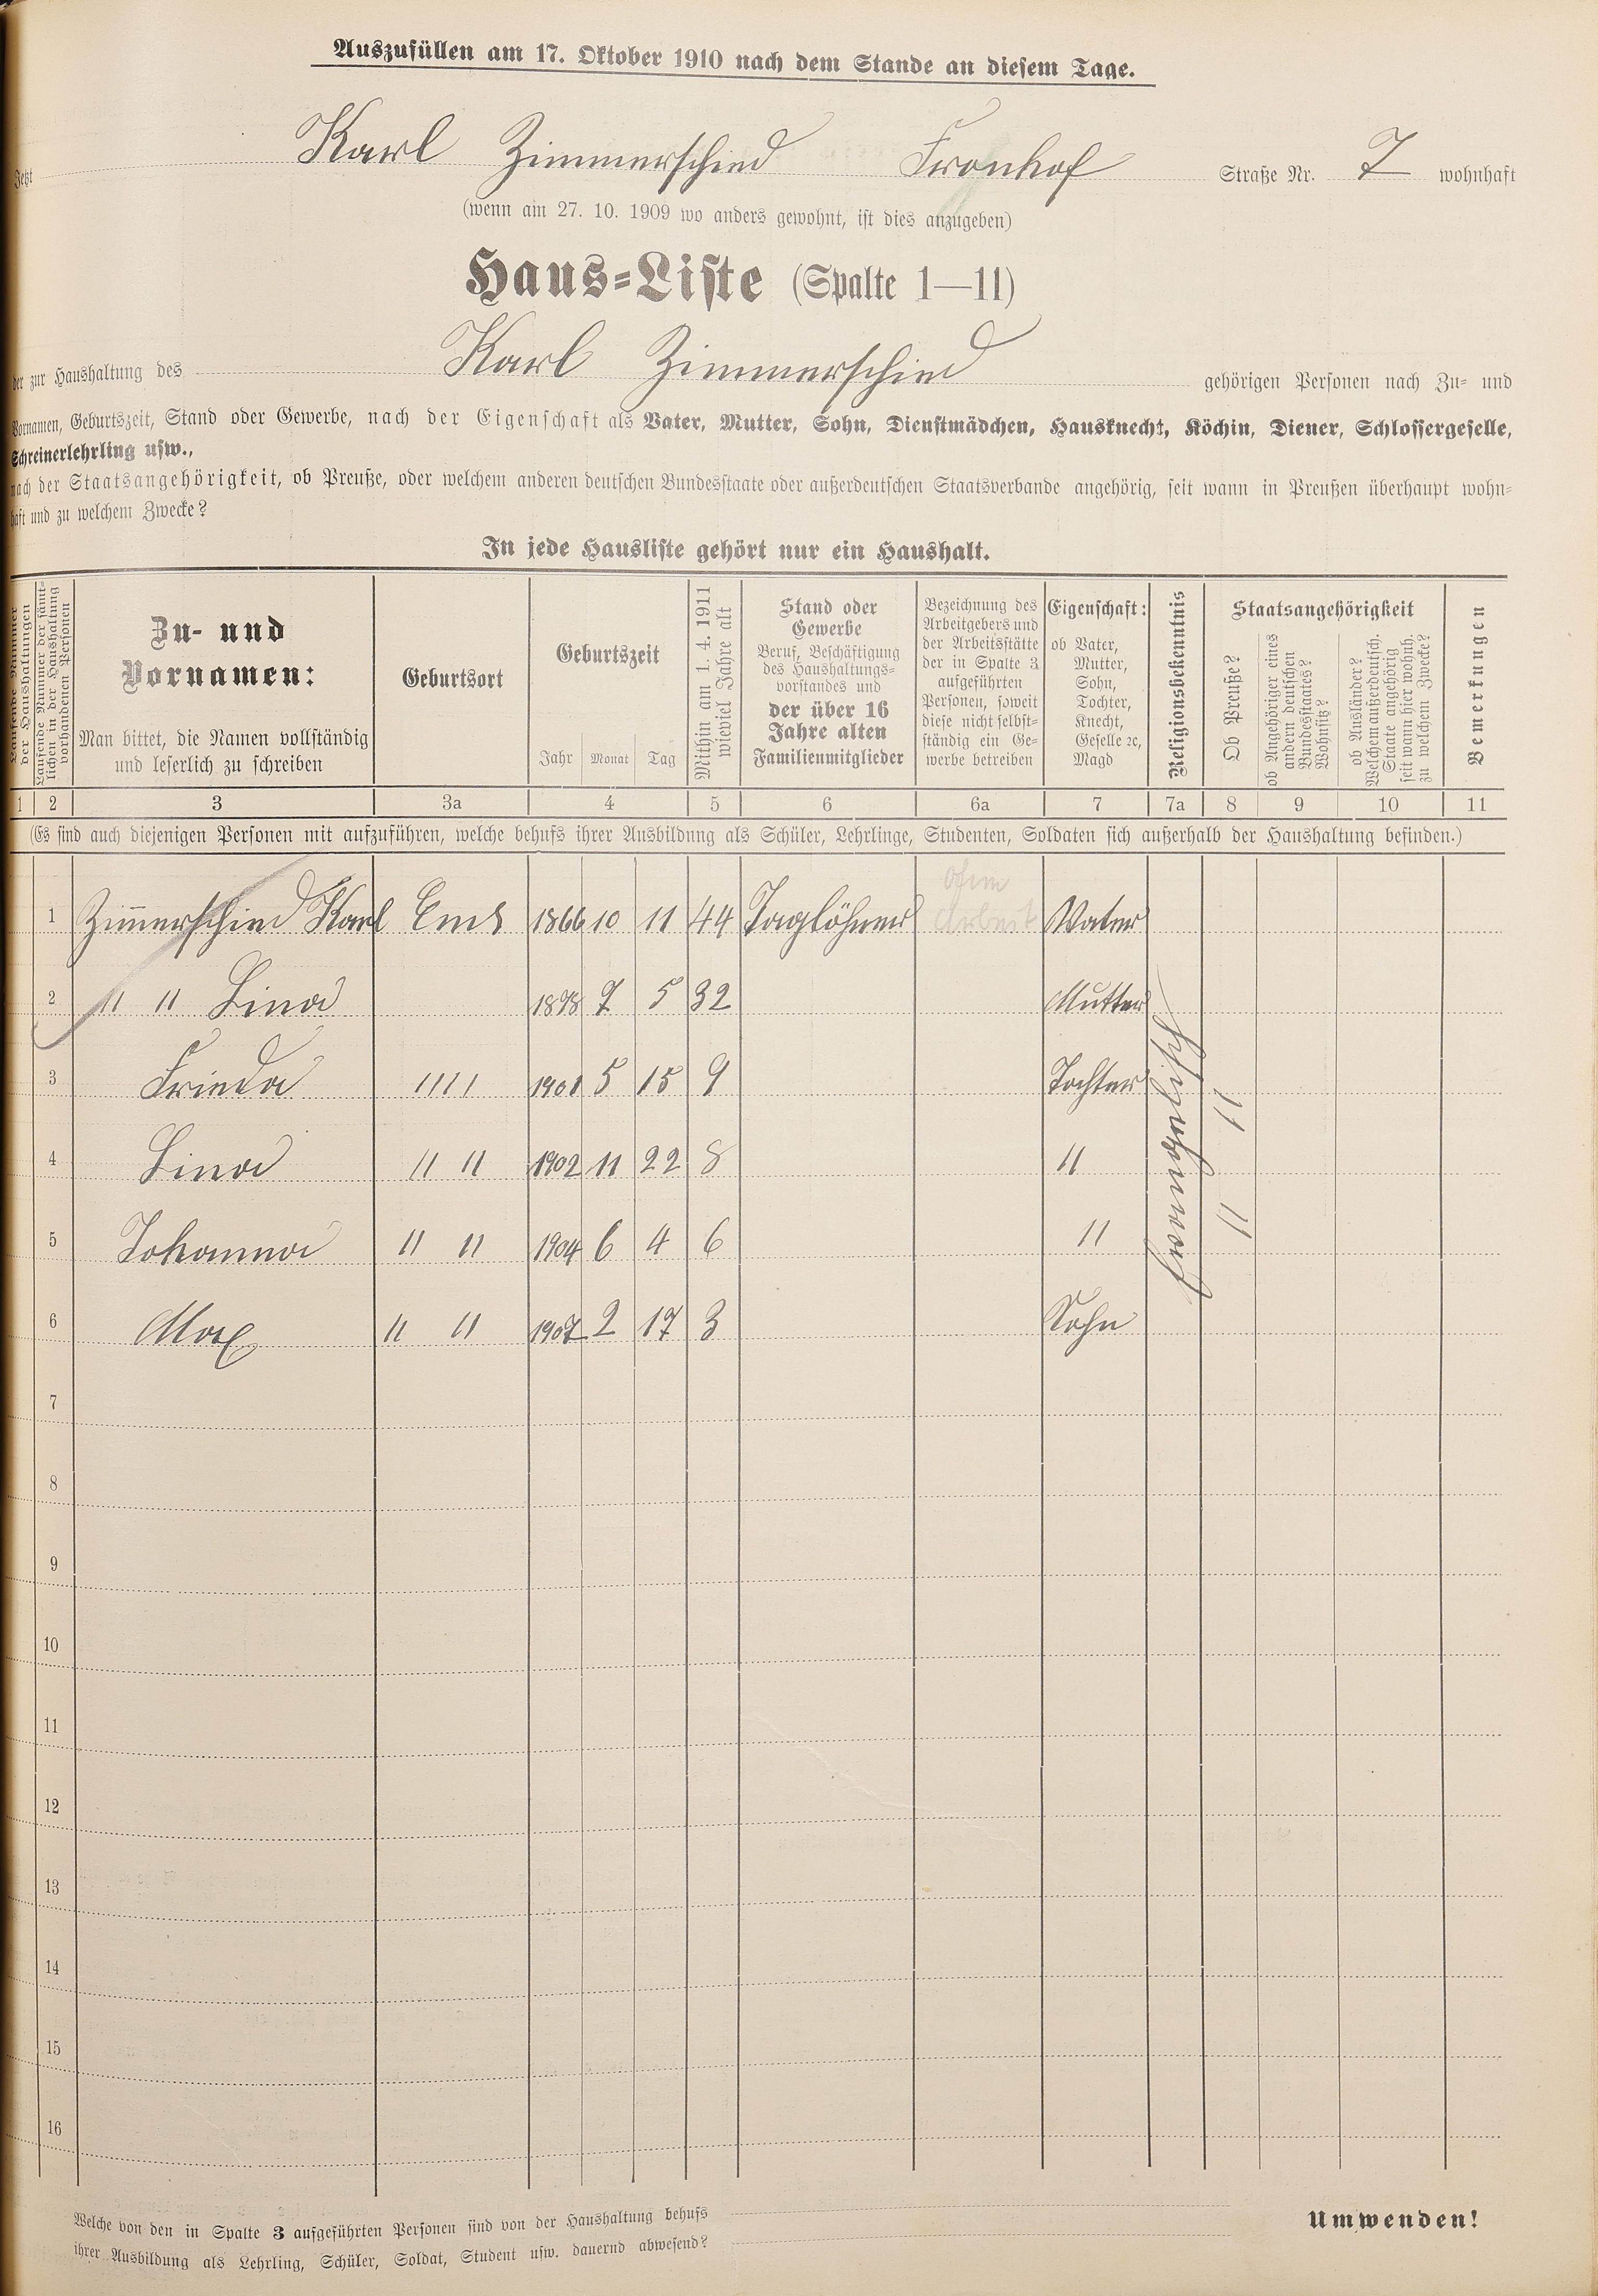 Auszufüllen am 17. Oktober 1910 nach dem Stande an diesem Tage.
Jetzt Karl Zimmerschied Fronhof Straße Nr. 7 wohnhaft
(wenn am 27. 10. 1909 wo anders gewohnt, ist dies anzugeben)
Haus-Liste (Spalte 1—11)
der zur Haushaltung des Karl Zimmerschied gehörigen Personen nach Zu- und
Vornamen, Geburtszeit, Stand oder Gewerbe, nach der Eigenschaft als Vater, Mutter, Sohn, Dienstmädchen, Hausknecht, Köchin, Diener, Schlossergeselle,
Schreinerlehrling usw.,
nach der Staatsangehörigkeit, ob Preuße, oder welchem anderen deutschen Bundesstaate oder außerdeutschen Staatsverbande angehörig, seit wann in Preußen überhaupt wohn-
haft und zu welchem Zwecke?
In jede Hausliste gehört nur ein Haushalt.
Laufende Nummer
der Haushaltungen
Laufende Nummer der sämt-
lichen in der Haushaltung
vorhandenen Personen
Zu- und
Vornamen:
Man bittet, die Namen vollständig
und leserlich zu schreiben
Geburtsort
Geburtszeit
Jahr Monat Tag
Mithin am 1. 4. 1911
wieviel Jahre alt
Stand oder
Gewerbe
Beruf, Beschäftigung
des Haushaltungs-
vorstandes und
der über 16
Jahre alten
Familienmitglieder
Bezeichnung des
Arbeitgebers und
der Arbeitsstätte
der in Spalte 3
aufgeführten
Personen, soweit
diese nicht selbst-
ständig ein Ge-
werbe betreiben
Eigenschaft:
ob Vater,
Mutter,
Sohn,
Tochter,
Knecht,
Geselle ꝛc,
Magd
Religionsbekenntnis
Staatsangehörigkeit
Ob Preuße?
ob Angehöriger eines
andern deutschen
Bundesstaates?
Wohnsitz?
ob Ausländer?
Welchem außerdeutsch.
Staate angehörig
seit wann hier wohnh.
zu welchem Zwecke?
Bemerkungen
1 2 3 3a 4 5 6 6a 7 7a 8 9 10 11
(Es sind auch diejenigen Personen mit aufzuführen, welche behufs ihrer Ausbildung als Schüler, Lehrlinge, Studenten, Soldaten sich außerhalb der Haushaltung befinden.)
ohne
1 Zim̅erschied Karl Ems 1866 10 11 44 Taglöhner Arbeit Vater
2 " " Lina 1878 7 5 32 Mutter
3 Frieda "" 1901 5 15 9 Tochter
4 Lina " " 1902 11 22 8 "
5 Johanna " " 1904 6 4 6 "
6 Max " " 1907 2 17 3 Sohn
evangelisch
" "
7
8
9
10
11
12
13
14
15
16
Welche von den in Spalte 3 aufgeführten Personen sind von der Haushaltung behufs
ihrer Ausbildung als Lehrling, Schüler, Soldat, Student usw. dauernd abwesend?
Umwenden!